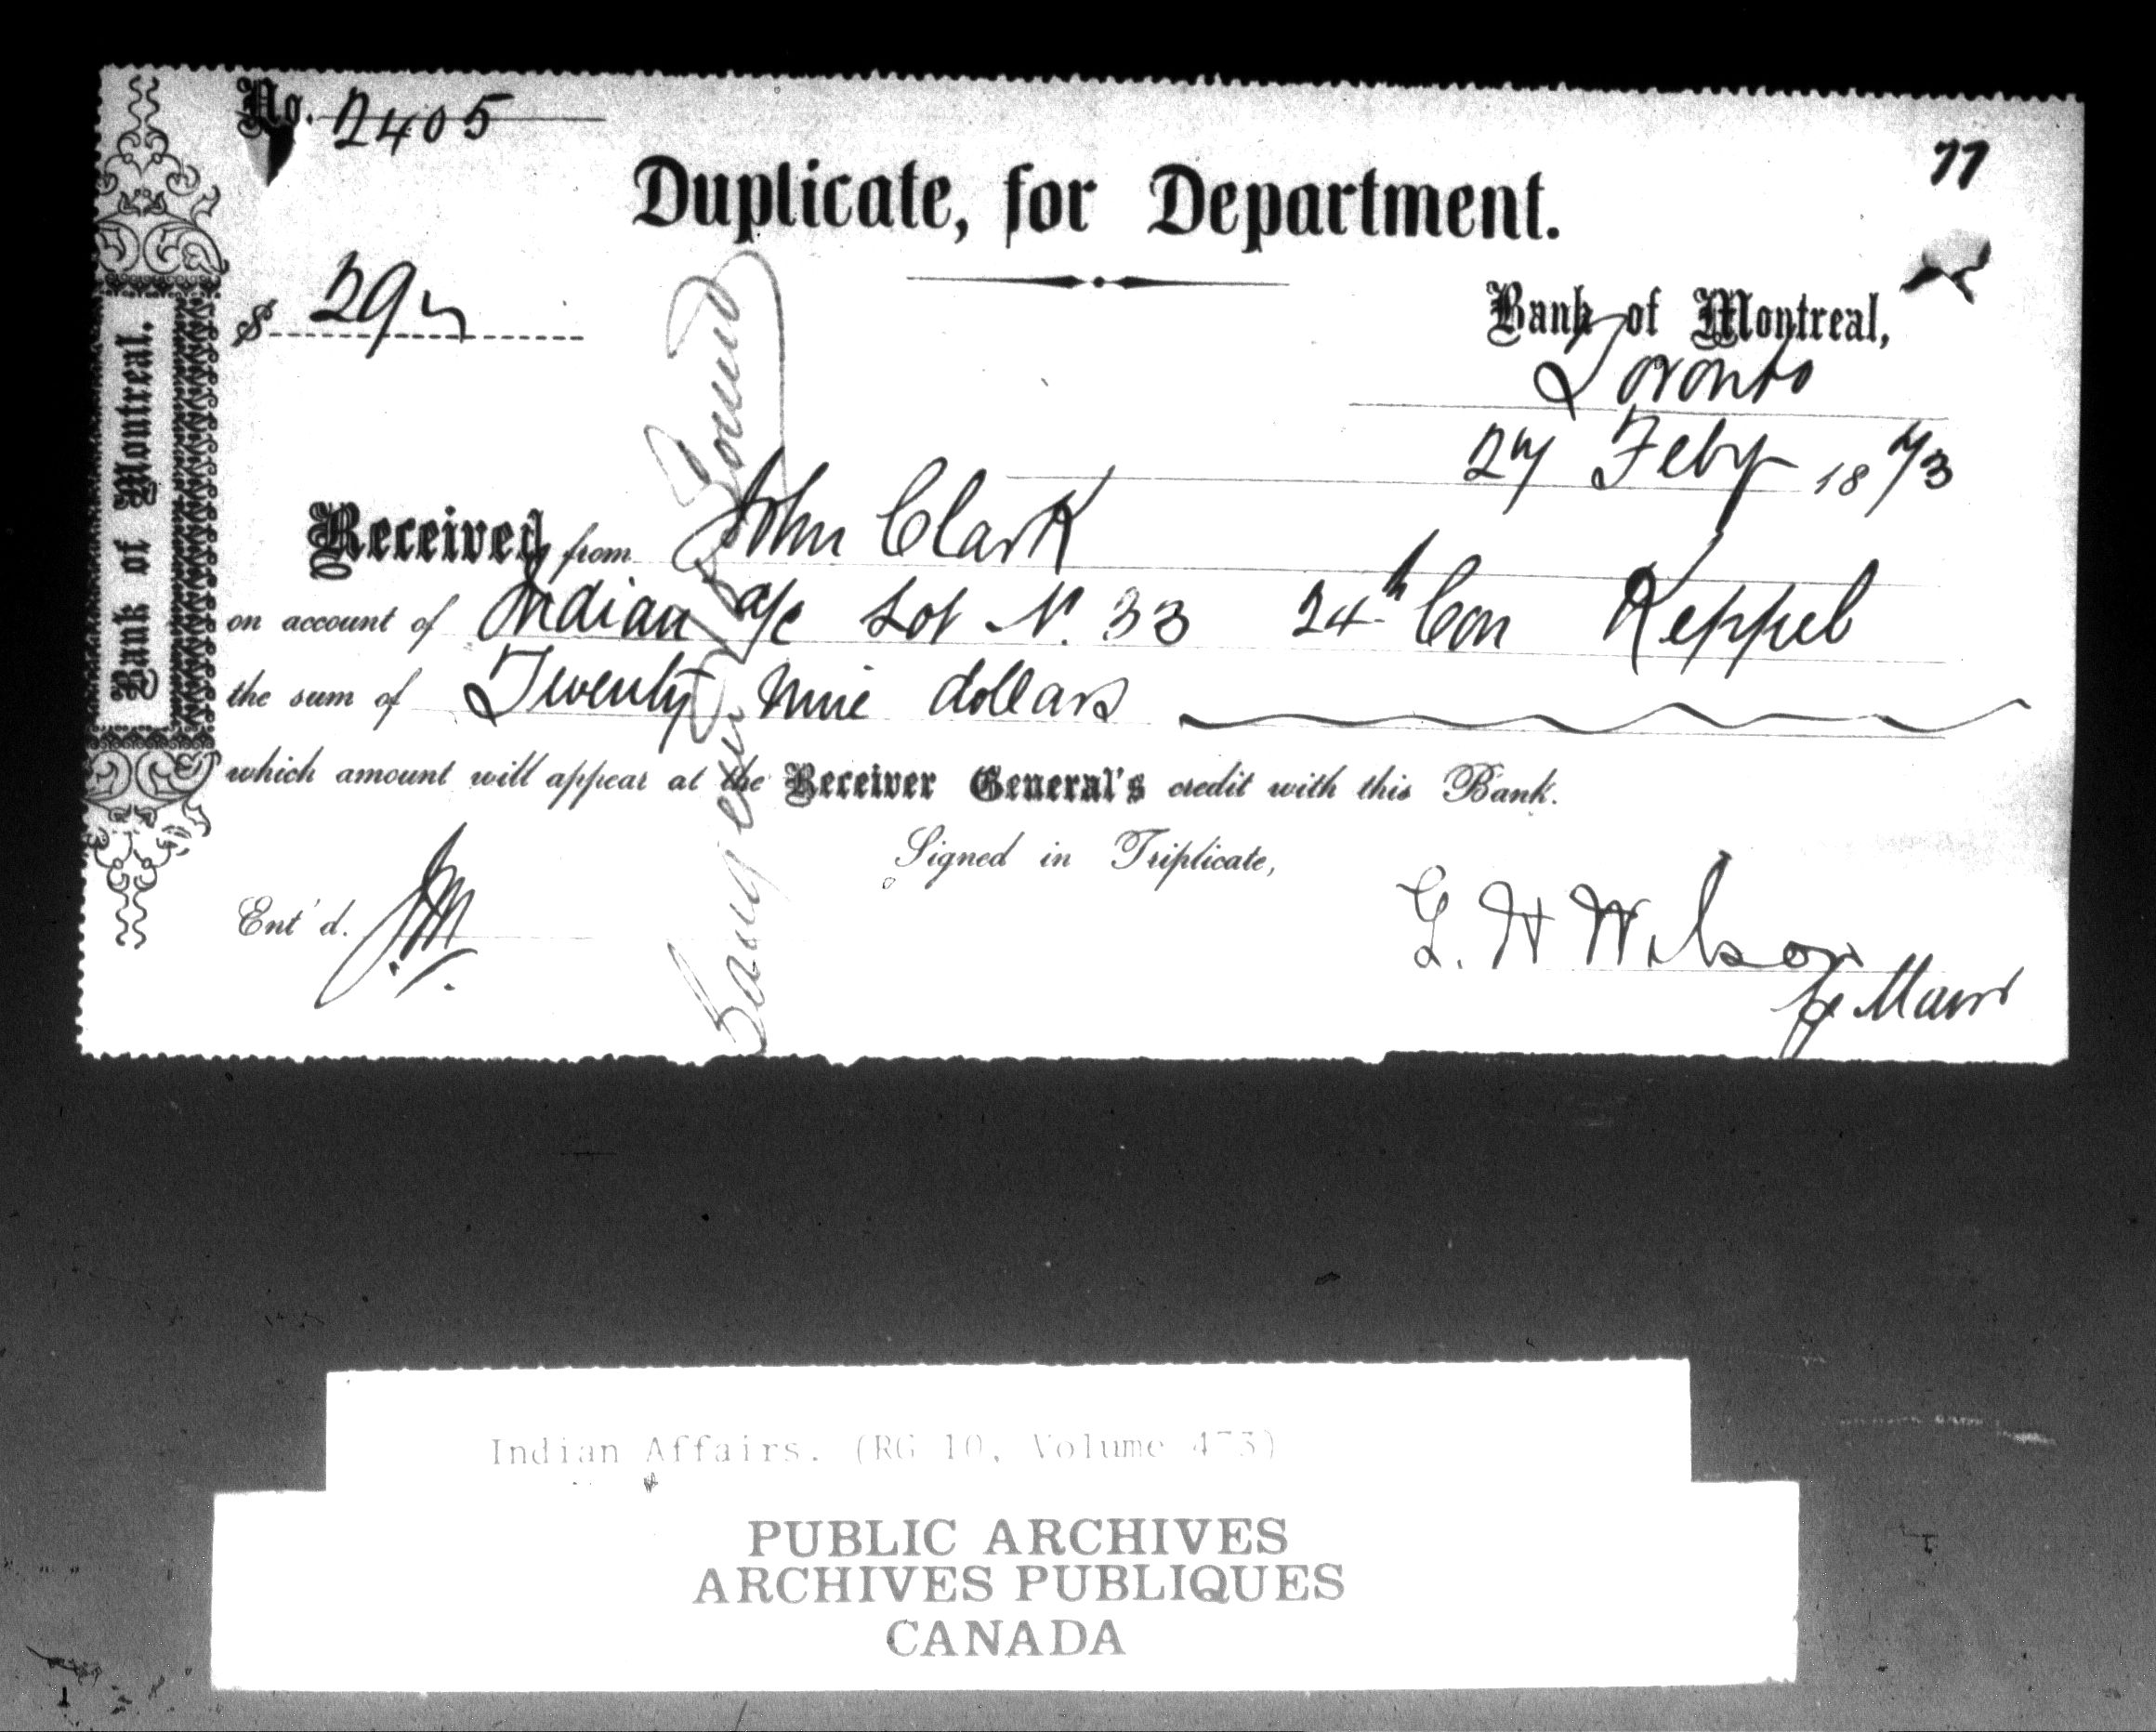 No. 2405
77
Duplicate, for Department.
$ 29
Bank of Montreal,
Toronto
27 Feby 1873
Received from John Clark
on account of Indian a/c Lot N. 33 24th Con Keppel
the sum of Twenty nine dollars
which amount will appear at the Receiver General's credit with this Bank.
Signed in Triplicate,
Ent'd. JM
G. H Wilson
Bank of Montreal.
Saugeen Sound
Indian Affairs. (RG 10, Volume 473)
PUBLIC ARCHIVES
ARCHIVES PUBLIQUES
CANADA